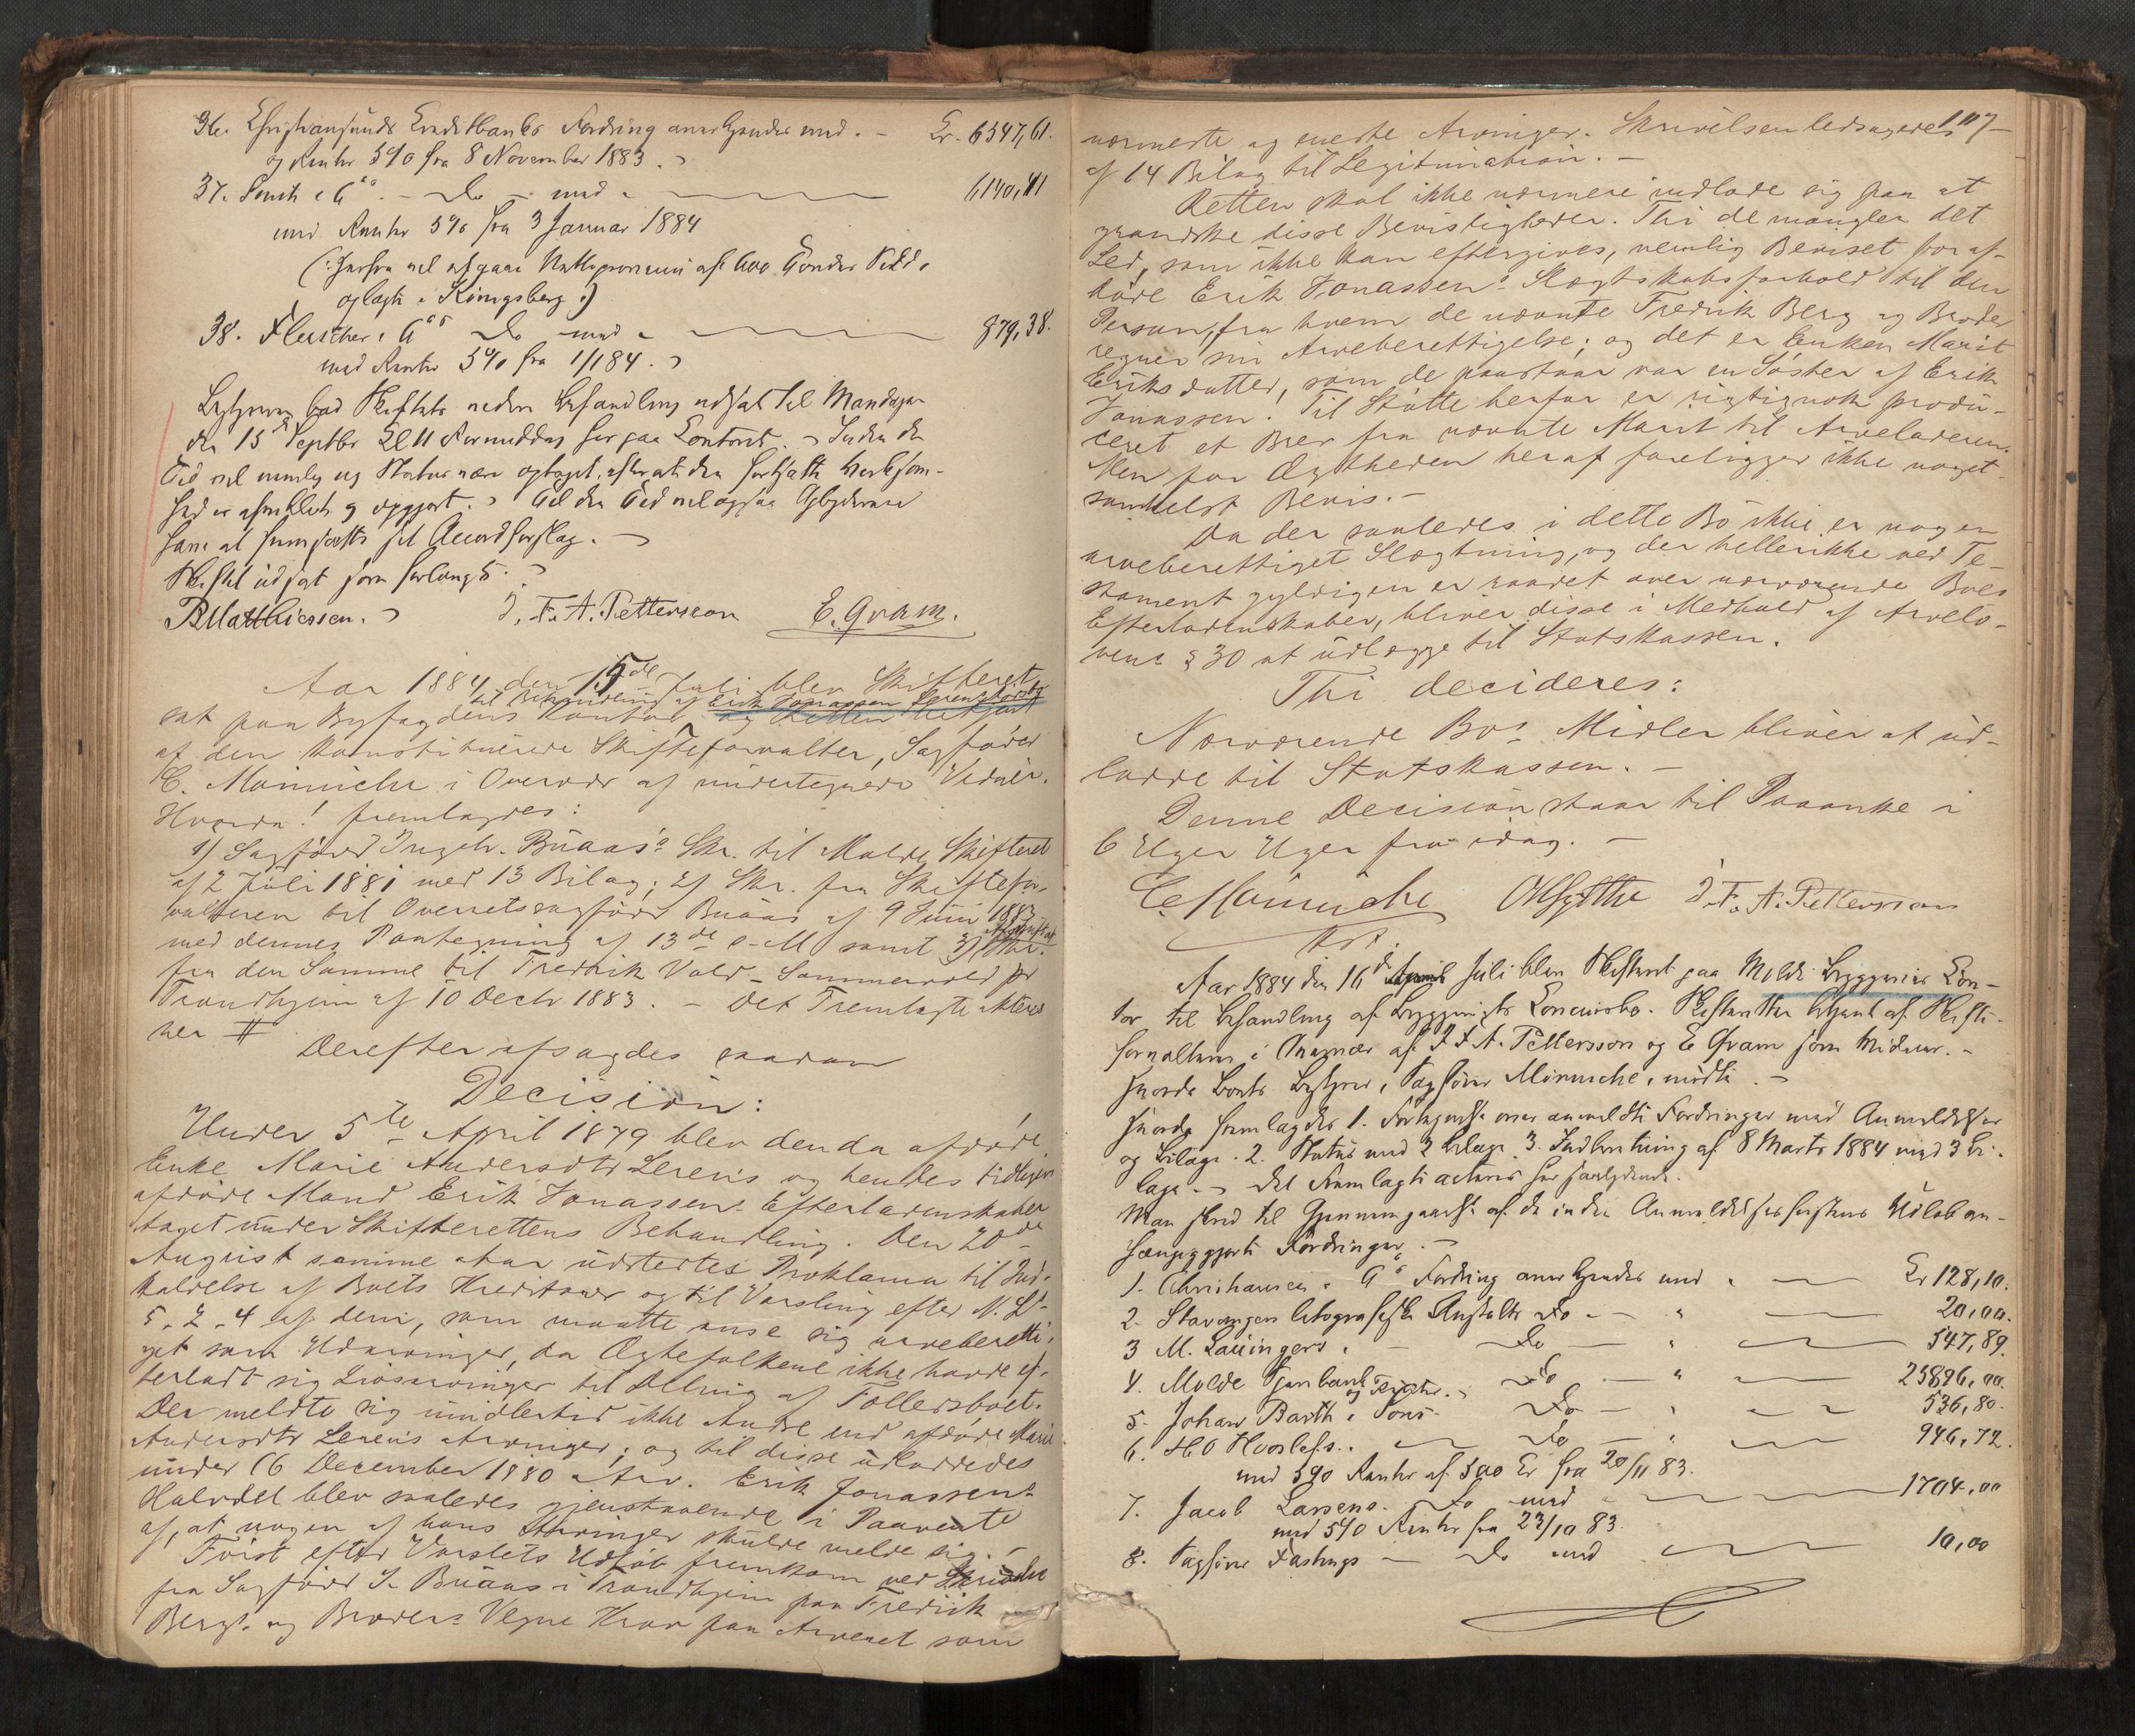 36. Christiansunds Creditbanks Fordring anerkjendes med. – Kr. 6347,61.
og Renter 5% fra 8 November 1883.
37. Smith & Co. – Do – med 6140,41
med Renter 5% fra 3 Januar 1884
(: herfra vil afgaa Nettoprovenu af 600 Tønder Sild,
oplagt i Königsberg :)
38. Fleischer & Co Do med 879,38.
med Renter 5% fra 1/1 84.
Bestyreren bad Skiftets videre Behandling udsat til Mandagen
den 15de Septbr Kl 11 Formiddag her paa Contoret. Inden den
Tid vil nemlig ny Status være optaget, efterat den fortsatte Virksom-
hed er afsluttet og opgjort. Til den Tid vil ogsaa
have at fremsætte sit Accordforslag. –
Skiftet udsat som forlangt.
R Matthiessen. J. F. A. Pettersson E. Gram.
Aar 1884 den 15de Juli blev Skifteret
til Behandling af Erik Jonassen
sat paa Byfogdens Kontor og Retten betjent
af den konstituerede Skifteforvalter, Sagfører
C. Mönniche i Overvær af undertegnede Vidner.
Hvorda! fremlagdes:
1) Sagfører Ingebr. Buaas's Skr. til Molde Skifteret
af 2 Juli 1881 med 13 Bilag; 2) Skr. fra Skiftefor-
valteren til Overretssagfører Buaas af 9 Juni 1883
med dennes Paategning af 13de s. M. samt 3) Afskrift af Skr.
fra den Samme til Fredrik Vald. Sommervold pr
Trondhjem af 10 Decbr 1883. – Det Fremlagte Akteres
her #
Derefter afsagdes saadan
Decision:
Under 5te April 1879 blev den da afdøde
Enke Marie Andersdtr Lereris og hendes tidligere
afdøde Mand Erik Jonassens Efterladenskaber
taget under Skifterettens Behandling. Den 20de
August samme Aar udstedtes Proklama til Ind-
kaldelse af Boets Kreditorer og til Varsling efter N. L's
5-2-4 af dem, som maatte anse sig arveberetti-
get som Udarvinger, da Ægtefolkene ikke havde ef-
terladt sig Livsarvinger til Deling af Fællesboet.
Der meldte sig imidlertid ikke Andre end afdøde Marie
Andersdtr Lereris Arvinger; og til disse udloddedes
under 16 December 1880 Arv. Erik Jonassens
Halvdel blev saaledes gjenstaaende i Paavente
af, at nogen af hans Arvinger skulde melde sig. –
Først efter Varslets Udløb fremkom ved Skrivelse
fra Sagfører I. Buaas i Trondhjem paa Fredrik
Bergs og Broders Vegne Krav paa Arven som
107
nærmeste og eneste Arvinger. Skrivelsen ledsagedes
af 14 Bilag til Legitimation. –
Retten skal ikke nærmere indlade sig paa at
granske disse Bevisligheder. Thi de mangler det
Led, som ikke kan eftergives, nemlig Beviset for af-
døde Erik Jonassens Slægtskabsforhold til den
Person, fra hvem de nævnte Fredrik Berg og Broder
regner sin Arveberettigelse; og det er Enken Marit
Eriksdatter, som de paastaar var en Søster af Erik
Jonassen. Til Støtte herfor er rigtignok produ-
ceret et Brev fra nævnte Marit til Arveladeren.
Men for Ægtheden heraf foreligger ikke noget-
somhelst Bevis. –
Da der saaledes i dette Bo ikke er nogen
arveberettiget Slægtning, og der hellerikke ved Te-
stament gyldigen er raadet over nærværende Boes
Efterladenskaber, bliver disse i Medhold af Arvelo-
vens § 30 at udlægge til Statskassen.
Thi decideres:
Nærværende Bo's Midler bliver at ud-
lodde til Statskassen. –
Denne Decision staar til Paaanke i
6 Uger Uger fra idag. –
C. Mönniche O Gythe J. F. A. Pettersson
Aar 1884 den 16de April Juli blev Skifteret paa Molde Bryggeries Con-
tor til Behandling af Bryggeriets Concursbo. Skifteretten betjent af Skifte-
forvalteren i Overvær af J. F. A. Pettersson og E Gram som Vidner. –
Hvorda Boets Bestyrer, Sagfører Mönniche, mødte. –
Hvorda fremlagdes 1. Fortegnelse over anmeldte Fordringer med Anmeldelser
og Bilage. 2. Status med 2 Bilage 3. Indberetning af 8 Marts 1884 med 3 Bi-
lage. – Det Fremlagte acteres her saalydende.
Man skred til Gjennemgaaelse af de inden Anmeldelsesfristens Udløb an-
hængiggjorte Fordringer. –
1. Christiansen & Co Fordring anerkjendes med Kr 128,10.
2. Stavanger litografiske Anstalts Do – 20,00.
3 M. Lauingers – Do – 547,89.
4. Molde Sparebanks og Renter. Do – 25896,00.
5. Johan Barth & Søns – Do – 536,80.
6. H. O Hvoslefs. Do – 946,72.
med 5% Renter af 500 Kr fra 20/11 83.
7. Jacob Larsens. Do med 1704,00
med 5% Renter fra 23/10 83.
8. Sagfører Fastings – Do med 10,00